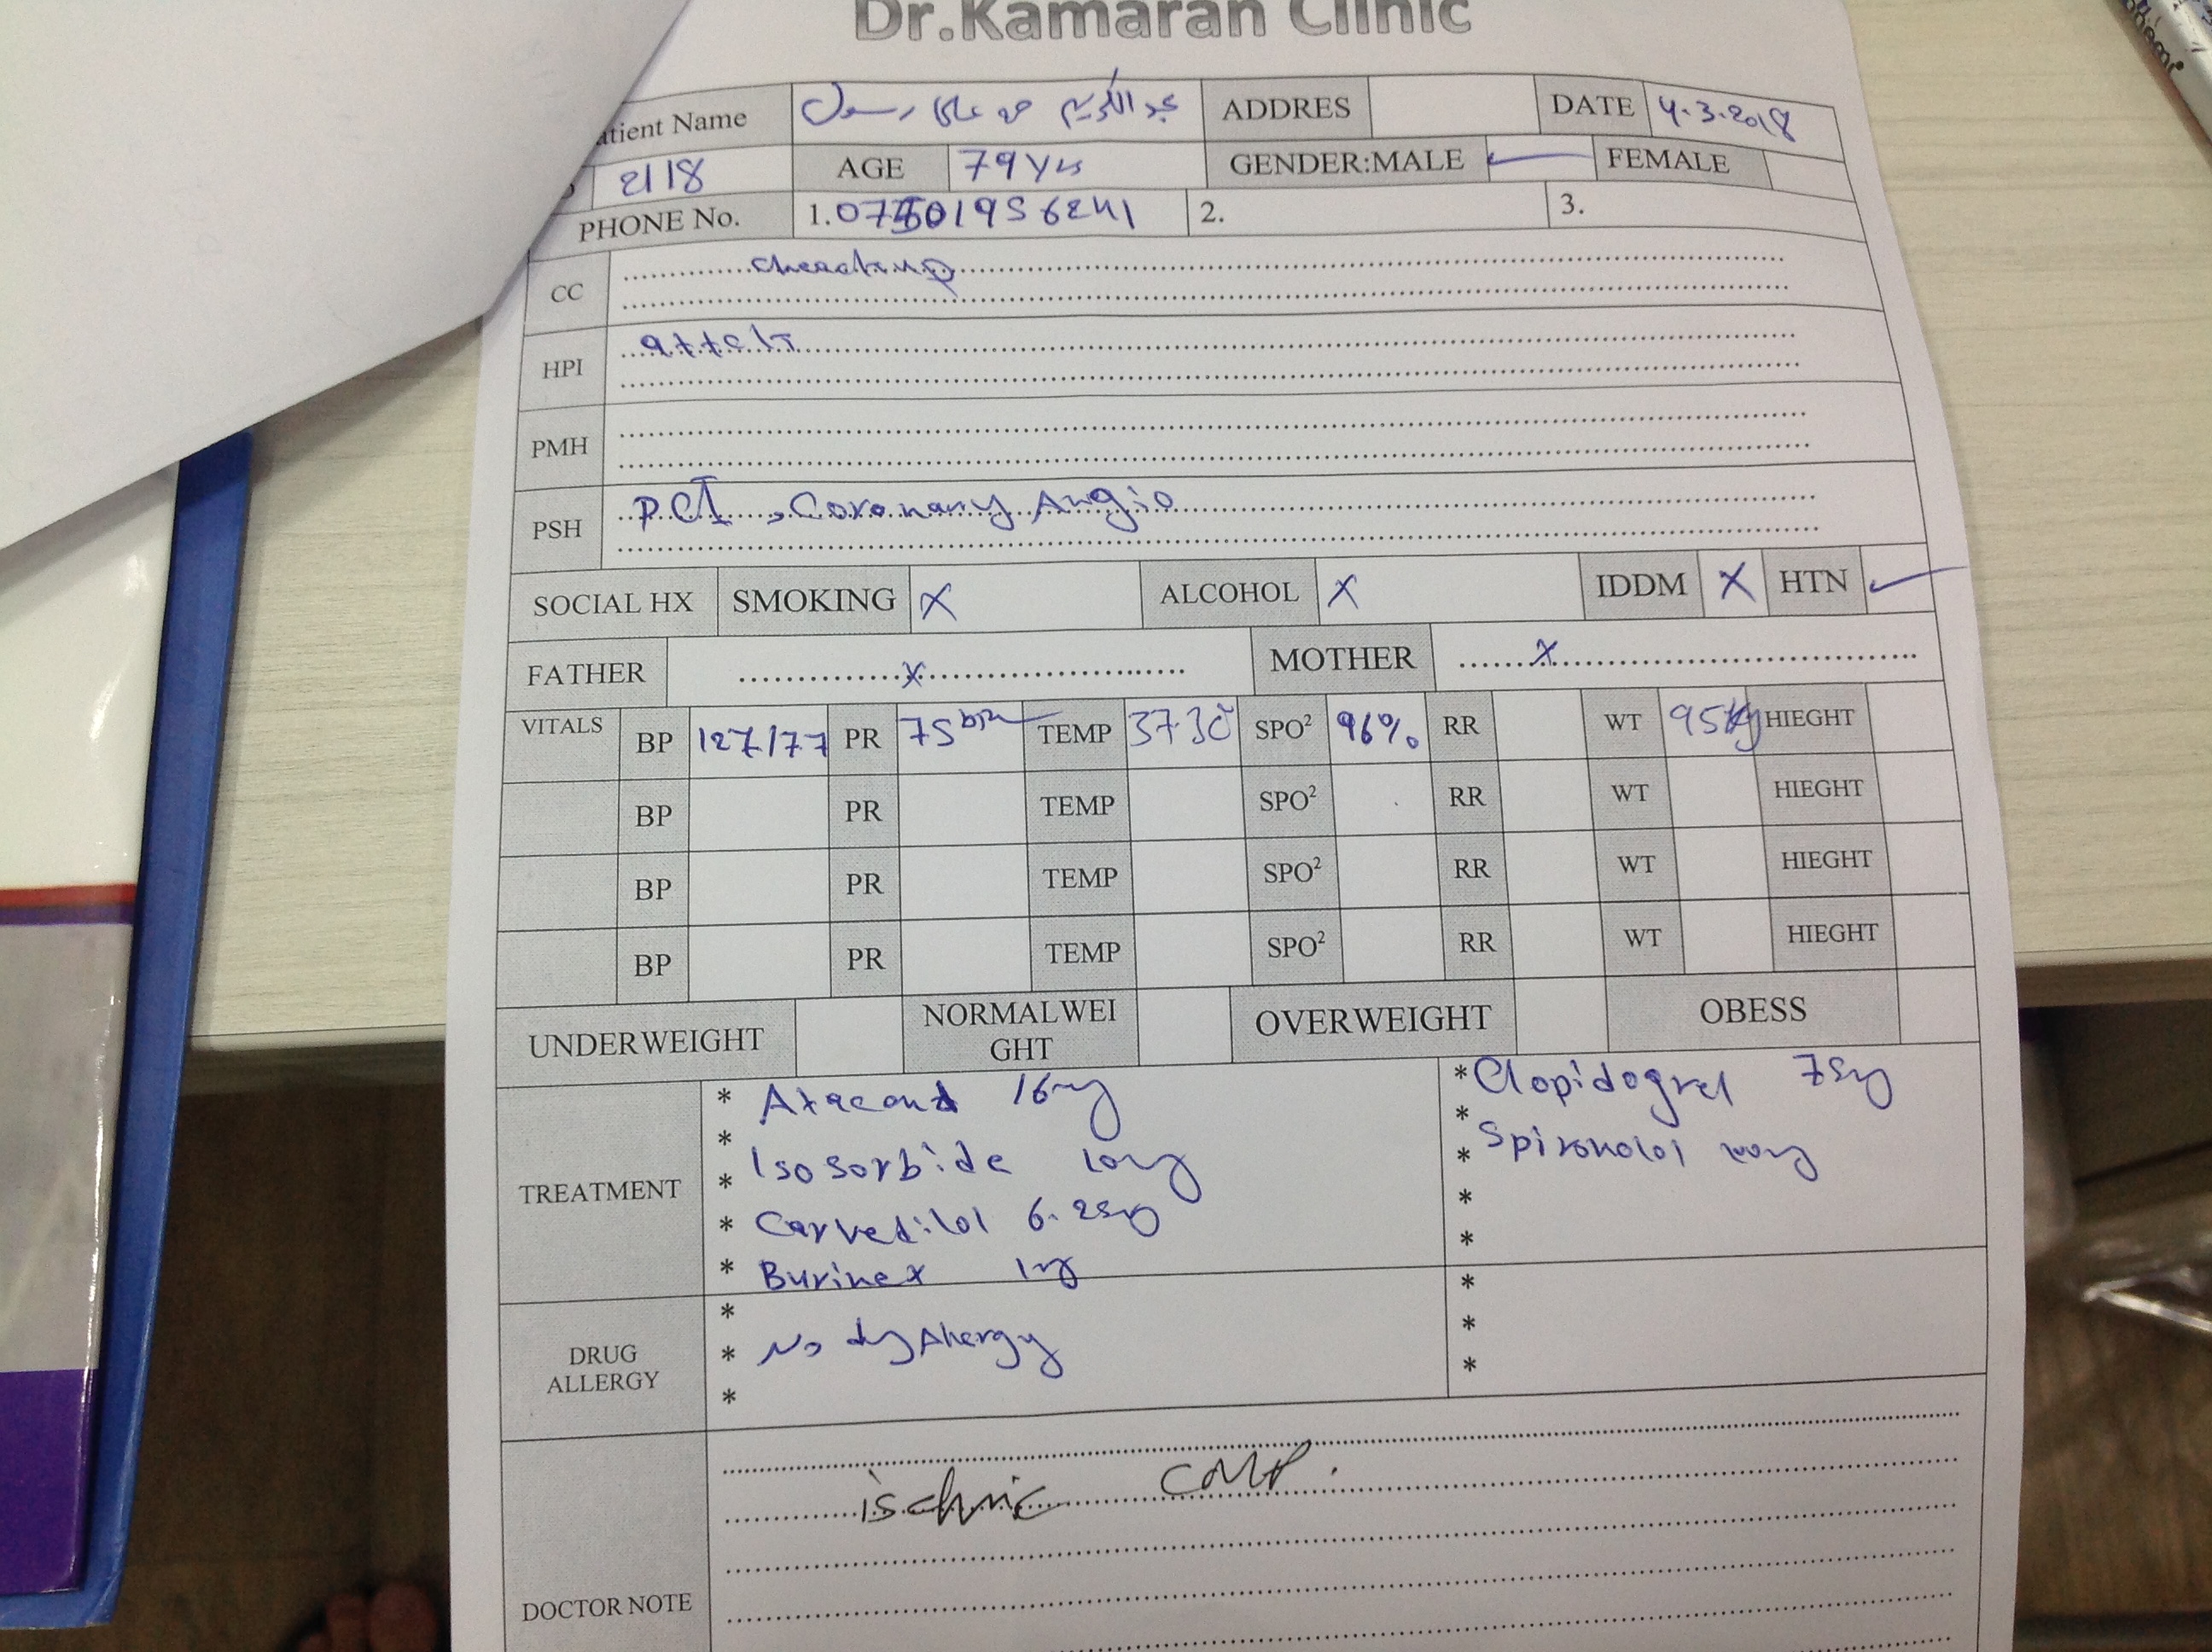 Dr.Kamaran Clinic
tient Name عبدالكريم حمه علي رسول ADDRES DATE 4.3.2018
2118 AGE 79 Yrs GENDER:MALE ✓ FEMALE
PHONE No. 1. 2. 3.
CC checkup
HPI
PMH
PSH PCI , Coronary Angio
SOCIAL HX SMOKING X ALCOHOL X IDDM X HTN ✓
FATHER X MOTHER X
VITALS BP 127/77 PR 75 bpm TEMP 37.3C SPO² 96% RR WT 95kg HIEGHT
BP PR TEMP SPO² RR WT HIEGHT
BP PR TEMP SPO² RR WT HIEGHT
BP PR TEMP SPO² RR WT HIEGHT
UNDERWEIGHT NORMALWEI OVERWEIGHT OBESS
GHT
TREATMENT
* Atacand 16mg
*
* Isosorbide 10mg
* Carvedilol 6.25mg
* Burinex 1mg
* Clopidogrel 75mg
*
* Spironolol
*
*
DRUG
ALLERGY
*
* No Allergy
*
*
*
*
DOCTOR NOTE
ischmic CMP.